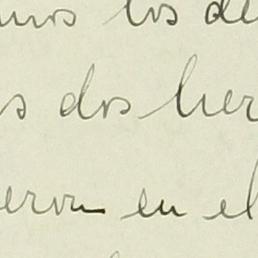 mos los de
s dos her
eron en el